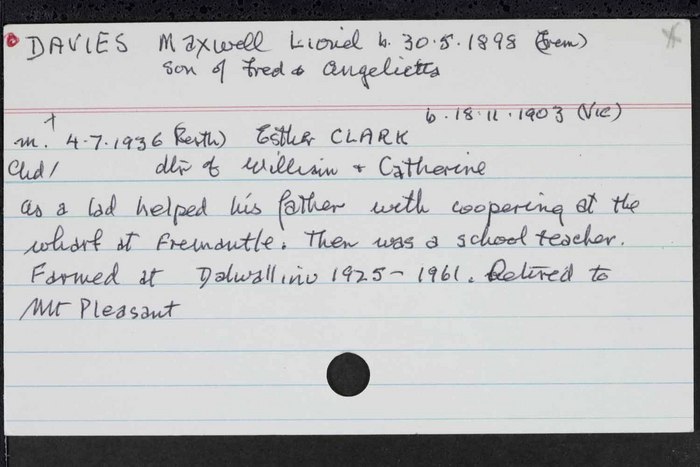 DAVIES Maxwell Lionel b. 30.5.1898 (Frem)
son of Fred & Angelietta
b. 18.11.1903 (Vic)
m. 4.7.1936 (Perth) Esther CLARK
Chd/ dtr of William + Catherine
As a lad helped his father with coopering at the
wharf at Fremantle. Then was a school teacher.
Farmed at Dalwallinu 1925-1961. Retired to
Mt Pleasant